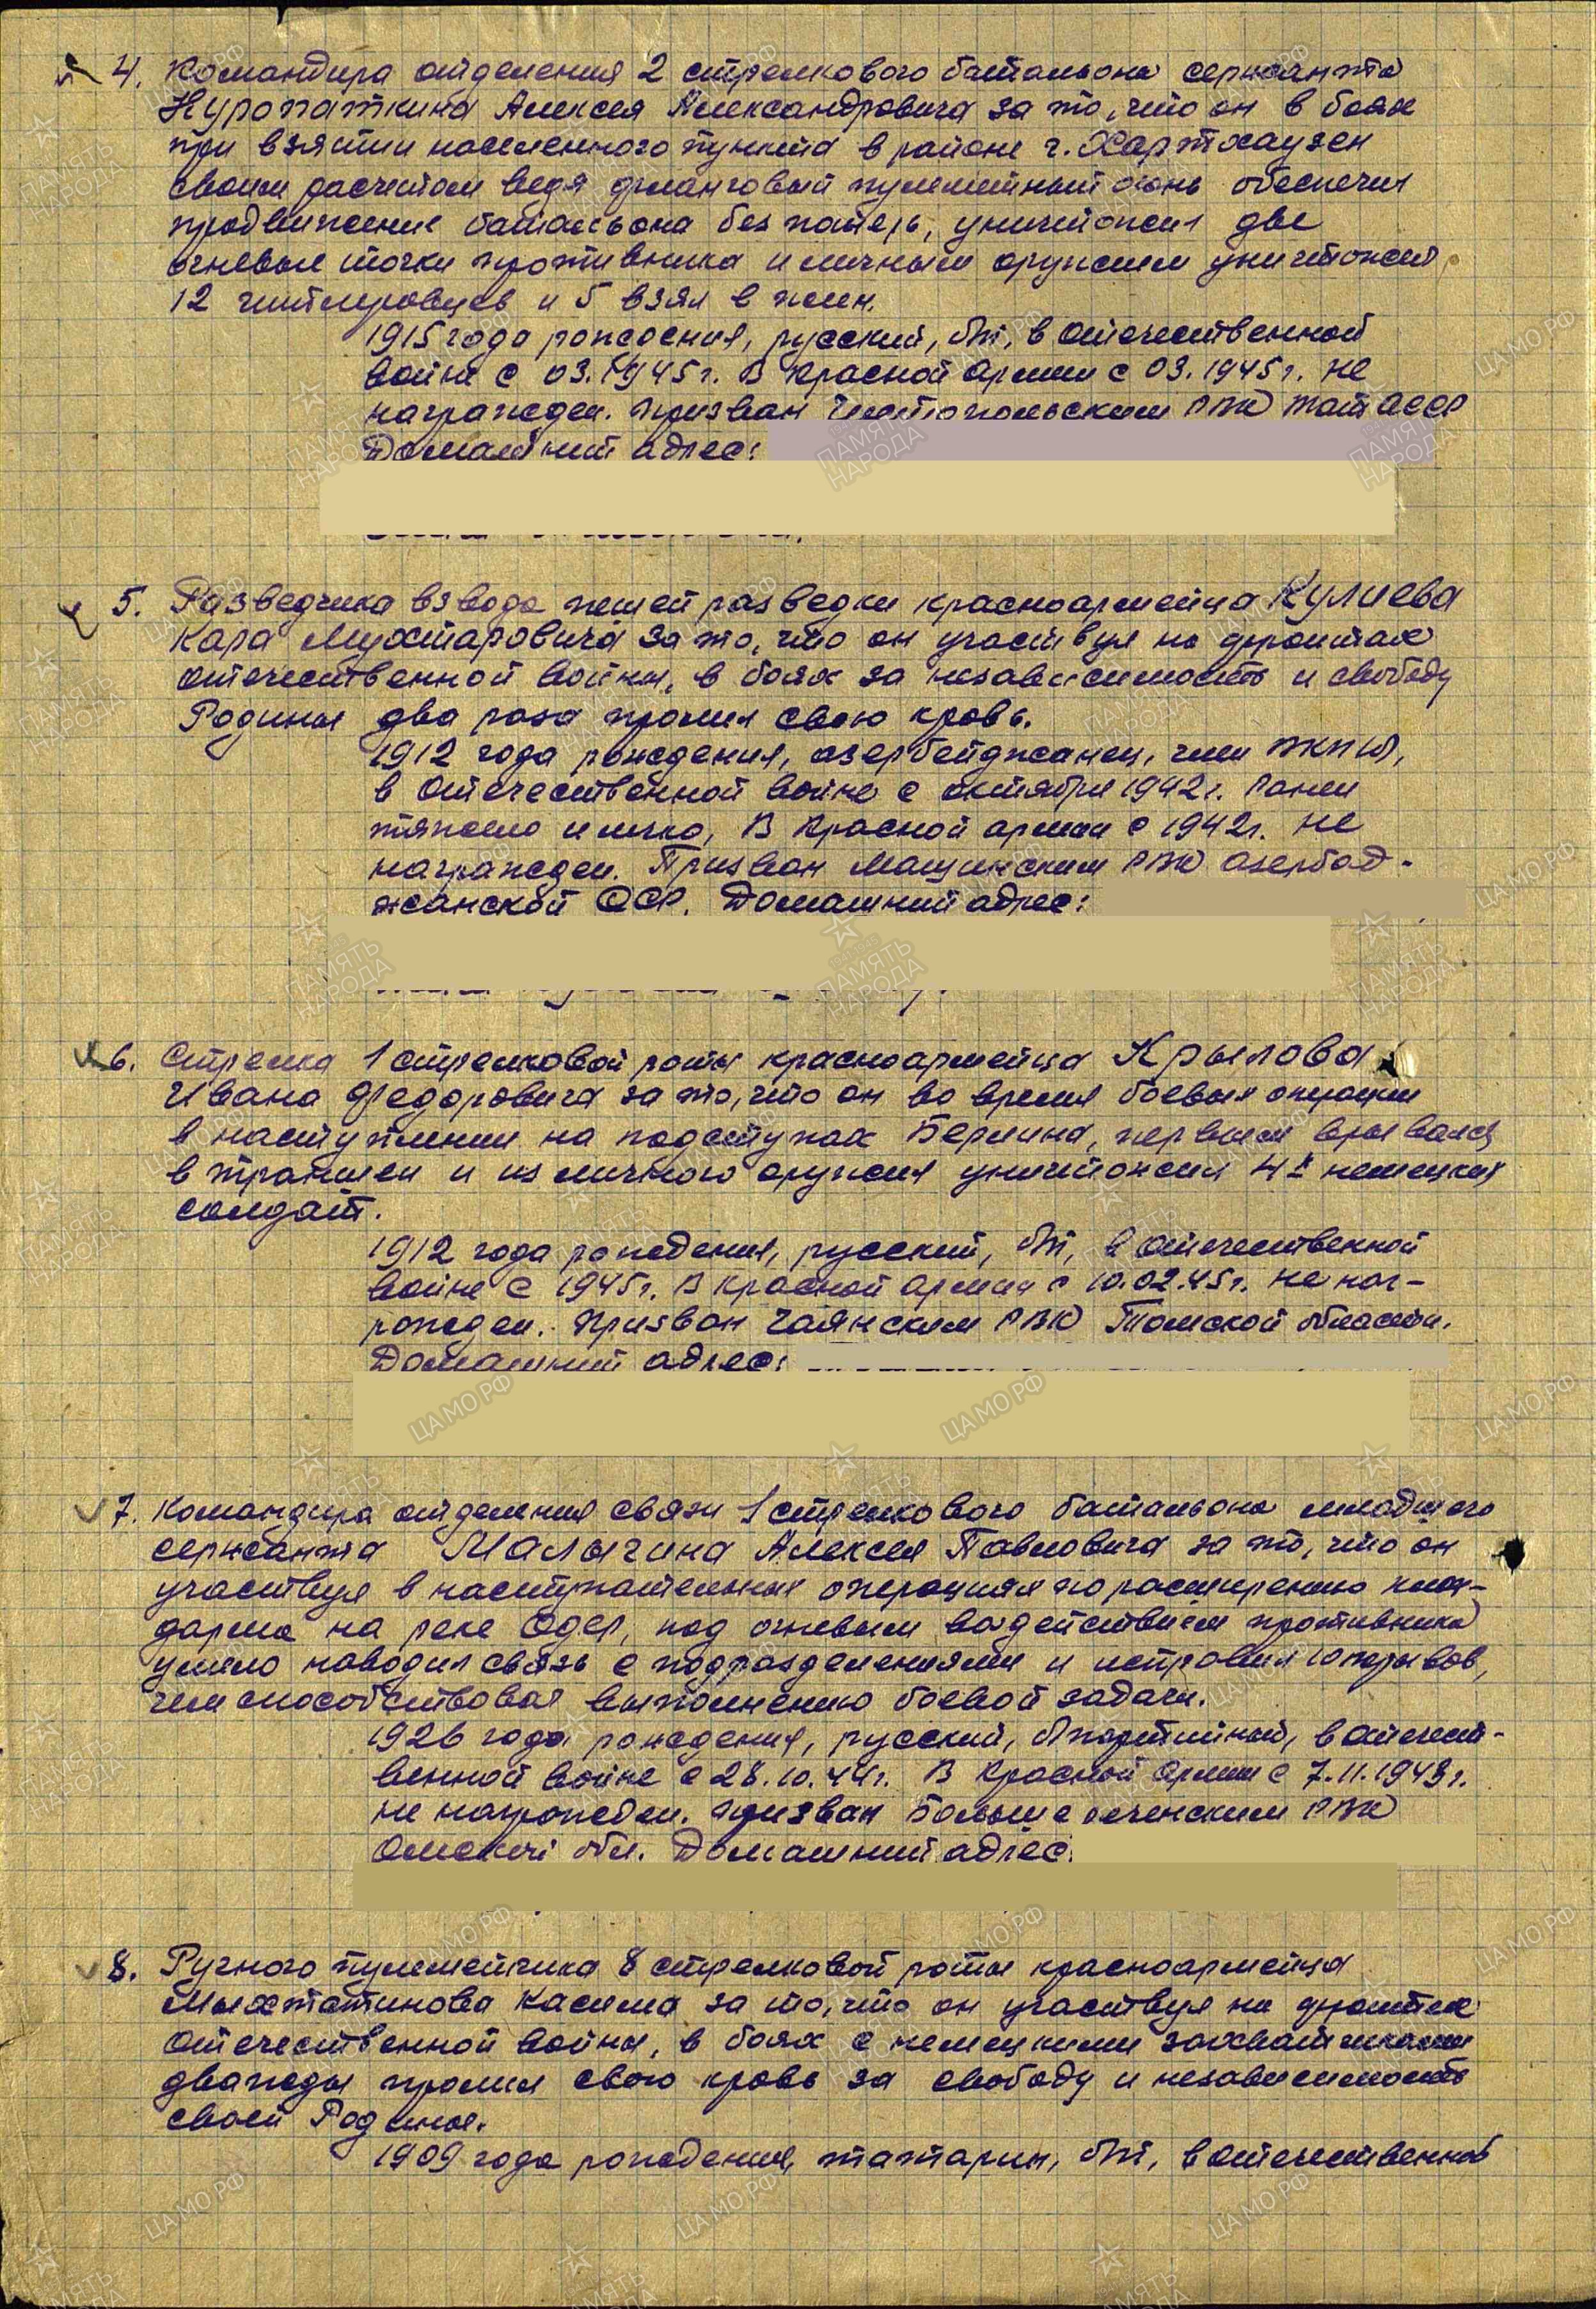 4. Командира отделения 2 стрелкового батальона сержанта
Куропаткина Алексея Александровича за то, что он в боях
при взятии населенного пункта в районе г. Хартхаузен
своим расчетом ведя фланговый пулеметный огонь обеспечил
продвижение батальона без потерь, уничтожил две
огневые точки противника и личным оружием уничтожил
12 гитлеровцев и 5 взял в плен.
1915 года рождения, русский, б/п, в Отечественной
войне с 03.1945 г. В Красной армии с 03.1945 г. не
награжден. Призван Чистопольским РВК ТатАССР
Домашний адрес:
5. Разведчика взвода пешей разведки красноармейца Кулиева
Кара Мухтаровича за то, что он участвуя на фронтах
отечественной войны, в боях за независимость и свободу
Родины два раза пролил свою кровь.
1912 года рождения, азербейджанец, член ВКП(б),
в Отечественной войне с октября 1942 г. Ранен
тяжело и легко, В Красной армии с 1942 г. не
награжден. Призван РВК Азербад-
жанской ССР. Домашний адрес:
6. Стрелка 1 стрелковой роты красноармейца Крылова
Ивана Федоровича за то, что он во время боевых операции
в наступлении на подступах Берлина, первым врывался
в траншеи и из личного оружия уничтожил 4х немецких
солдат.
1912 года рождения, русский, б/п, в Отечественной
войне с 1945 г. В Красной армии с 10.02.45 г. не наг-
ражден. Призван Чаянским РВК Томской области.
Домашний адрес:
7. Командира отделения связи 1 стрелкового батальона младшего
сержанта Малыгина Алексея Павловича за то, что он
участвуя в наступательных операциях по расширению плац-
дарма на реке Одер, под огневым воздействием противника
умело наводил связь с подразделениями и исправил 10 порывов,
чем способствовал выполнению боевой задачи.
1926 года рождения, русский, б/партийный, в Отечест-
венной войне с 28.10.44 г. В Красной армии с 7.11.1943 г.
не награжден. Призван Большереченским РВК
Омской обл. Домашний адрес:
8. Ручного пулеметчика 8 стрелковой роты красноармейца
Мыхтатинова Касима за то, что он участвуя на фронтах
Отечественной войны, в боях с немецкими захватчиками
дважды пролил свою кровь за свободу и независимость
своей Родины.
1909 года рождения, татарин, б/п, в Отечественной